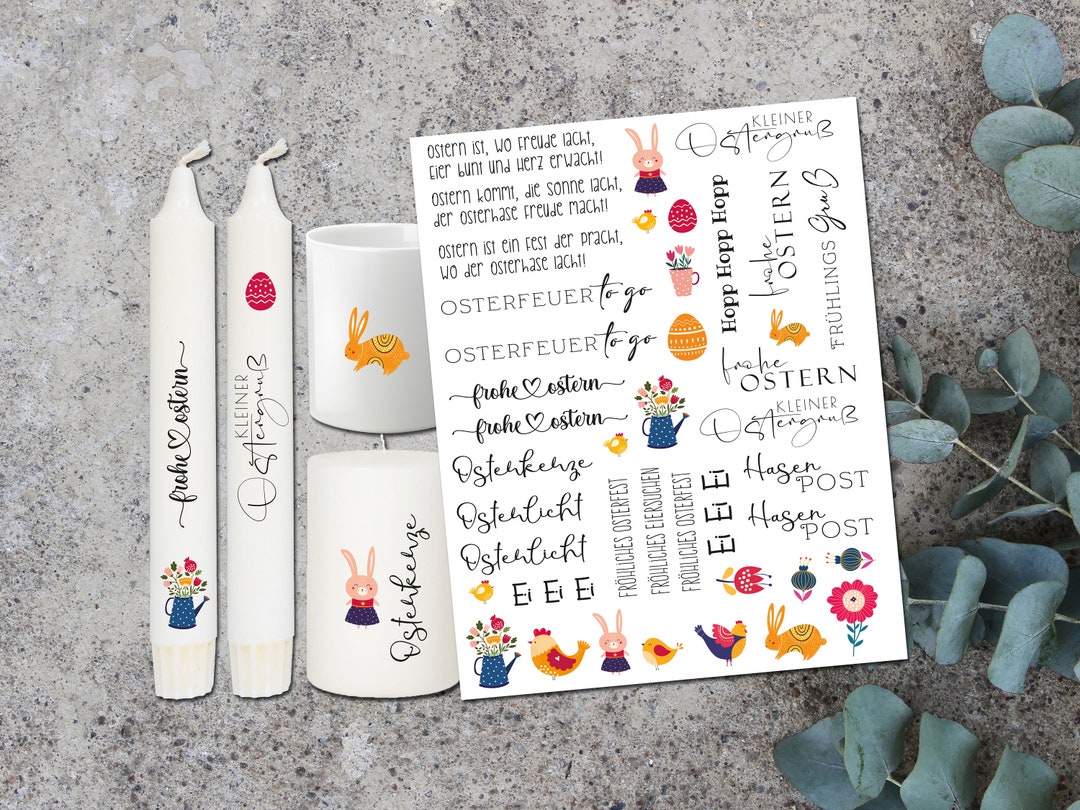 frohe ostern
KLEINER
Ostergruß
Osterkerze
Ostern ist, wo Freude lacht,
Eier bunt und Herz erwacht!
Ostern kommt, die Sonne lacht,
der Osterhase Freude macht!
Ostern ist ein Fest der Pracht,
wo der Osterhase lacht!
OSTERFEUER to go
OSTERFEUER to go
frohe ostern
frohe ostern
Osterkerze
Osterlicht
Osterlicht
Ei Ei Ei
FRÖHLICHES OSTERFEST
FRÖHLICHES EIERSUCHEN
FRÖHLICHES OSTERFEST
Ei Ei Ei
KLEINER
Ostergruß
Hopp Hopp Hopp
frohe
OSTERN
FRÜHLINGS Gruß
frohe
OSTERN
KLEINER
Ostergruß
Hasen
POST
Hasen
POST